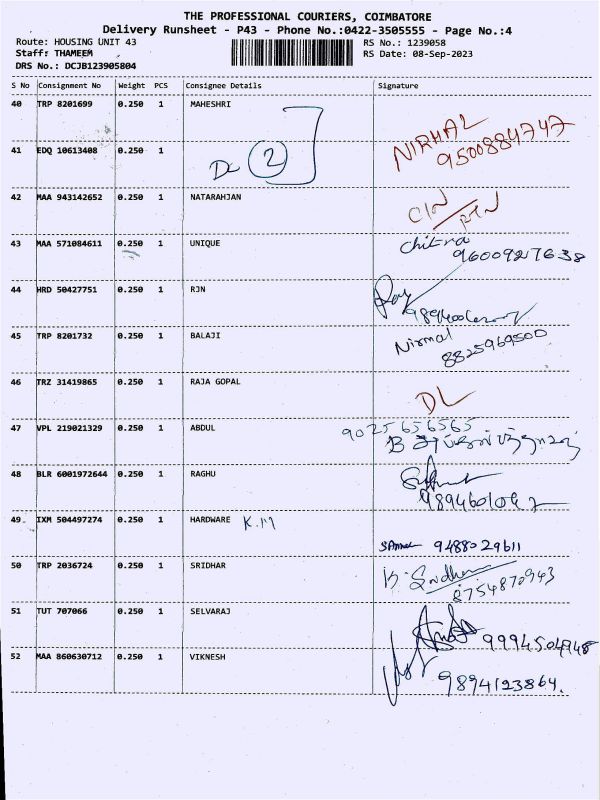 THE PROFESSIONAL COURIERS, COIMBATORE
Delivery Runsheet - P43 - Phone No.:0422-3505555 - Page No.:4
Route: HOUSING UNIT 43 RS No.: 1239058
Staff: THAMEEM RS Date: 08-Sep-2023
DRS No.: DCJB123905804
S No Consignment No Weight PCS Consignee Details Signature
40 TRP 8201699 0.250 1 MAHESHRI
NIRHAL
41 EDQ 10613408 0.250 1 9500884747
DL 2
42 MAA 943142652 0.250 1 NATARAHJAN
43 MAA 571084611 0.250 1 UNIQUE Chitra
9600927638
44 HRD 50427751 0.250 1 RJN
45 TRP 8201732 0.250 1 BALAJI Nirmal
8825969500
46 TRZ 31419865 0.250 1 RAJA GOPAL DL
47 VPL 219021329 0.250 1 ABDUL 9025656565
48 BLR 6001972644 0.250 1 RAGHU
49. IXM 504497274 0.250 1 HARDWARE K.M
9488029611
50 TRP 2036724 0.250 1 SRIDHAR K. Sridhar
8754870943
51 TUT 707066 0.250 1 SELVARAJ
9994504948
52 MAA 860630712 0.250 1 VIKNESH
9894123864.